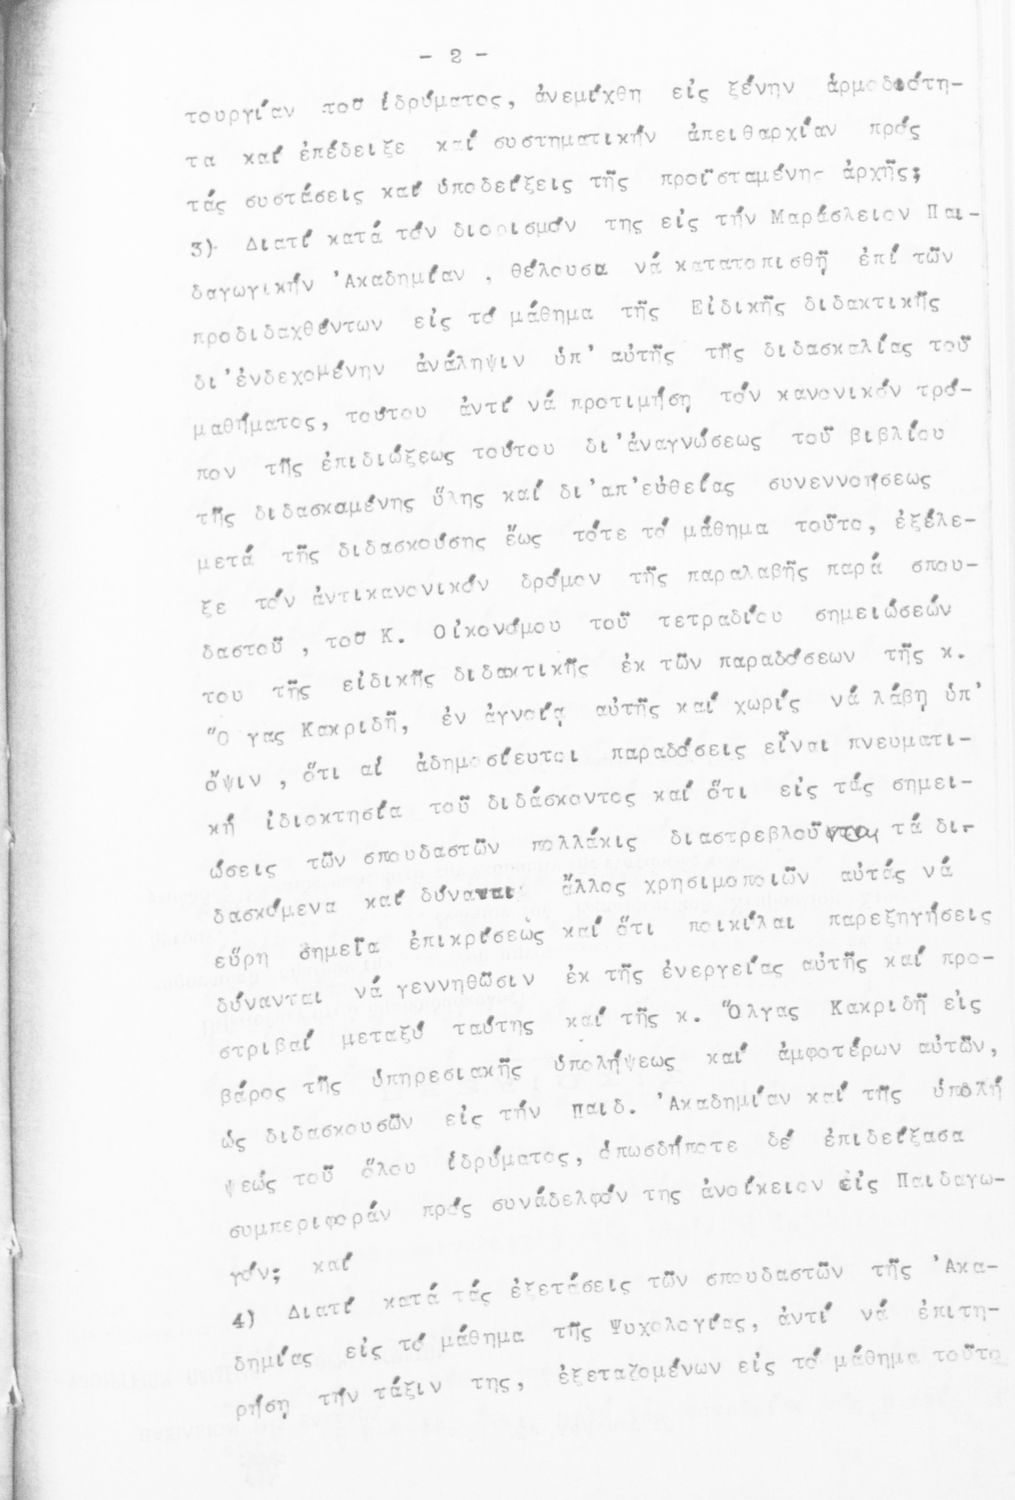 - 2 -
τουργίαν τοῦ ἱδρύματος, ἀνεμίχθη εἰς ξένην ἁρμοδιότη-
τα καί ἐπέδειξε καί συστηματικήν ἀπειθαρχίαν πρός
τάς συστάσεις καί ὑποδείξεις τῆς προϊσταμένης ἀρχῆς;
3) Διατί κατά τόν διορισμόν της εἰς τήν Μαράσλειον Παι-
δαγωγικήν 'Ακαδημίαν , θέλουσα νά κατατοπισθῇ ἐπί τῶν
προδιδαχθέντων εἰς τό μάθημα τῆς Εἰδικῆς διδακτικῆς
δι'ἐνδεχομένην ἀνάληψιν ὑπ' αὐτῆς τῆς διδασκαλίας τοῦ
μαθήματος, τούτου ἀντί νά προτιμήσῃ τόν κανονικόν τρό-
πον τῆς ἐπιδιώξεως τούτου δι'ἀναγνώσεως τοῦ βιβλίου
τῆς διδασκαμένης ὕλης καί δι'απ'εὐθείας συνεννοήσεως
μετά τῆς διδασκούσης ἕως τότε τό μάθημα τοῦτο, ἐξέλε-
ξε τόν ἀντικανονικόν δρόμον τῆς παραλαβῆς παρά σπου-
δαστοῦ , τοῦ Κ. Οἰκονόμου τοῦ τετραδίου σημειώσεών
του τῆς εἰδικῆς διδακτικῆς ἐκ τῶν παραδόσεων τῆς κ.
"Ο γας Κακριδῆ, ἐν ἀγνοίᾳ αὐτῆς καί χωρίς νά λάβῃ ὑπ'
ὄψιν , ὅτι αἱ ἀδημοσίευτοι παραδόσεις εἶναι πνευματι-
κή ἰδιοκτησία τοῦ διδάσκοντος καί ὅτι εἰς τάς σημει-
ώσεις τῶν σπουδαστῶν πολλάκις διαστρεβλοῦνται τά δι-
δασκόμενα καί δύναται ἄλλος χρησιμοποιῶν αὐτάς νά
εὕρῃ σημεῖα ἐπικρίσεώς καί ὅτι ποικίλαι παρεξηγήσεις
δύνανται νά γεννηθῶσιν ἐκ τῆς ἐνεργείας αὐτῆς καί προ-
στριβαί μεταξύ ταύτης καί τῆς κ. Ὄλγας Κακριδῆ εἰς
βάρος τῆς ὑπηρεσιακῆς ὑπολήψεως καί ἀμφοτέρων αὐτῶν,
ὡς διδασκουσῶν εἰς τήν παιδ. 'Ακαδημίαν καί τῆς ὑπολή
ψεώς τοῦ ὅλου ἱδρύματος, ὁπωσδήποτε δέ ἐπιδείξασα
συμπεριφοράν πρός συνάδελφόν της ἀνοίκειον εἰς Παιδαγω-
γόν; καί
4) Διατί κατά τάς ἐξετάσεις τῶν σπουδαστῶν τῆς 'Ακα-
δημίας εἰς τό μάθημα τῆς Ψυχολογίας, ἀντί νά ἐπιτη-
ρήσῃ τήν τάξιν της, ἐξεταζομένων εἰς τό μάθημα τοῦτο